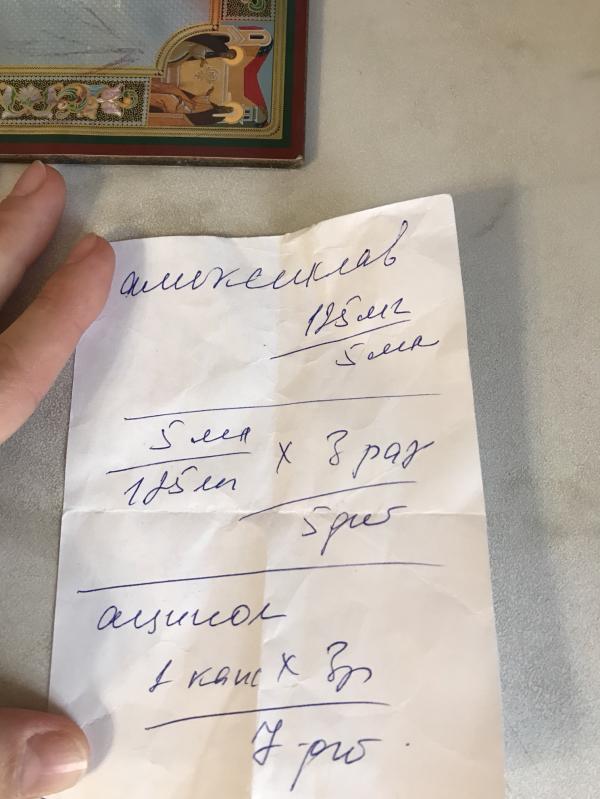 амоксиклав
125 мг
5 мл
5 мл
125 мг х 3 раз
5 дней
аципол
1 капс х 3 р
7 дней